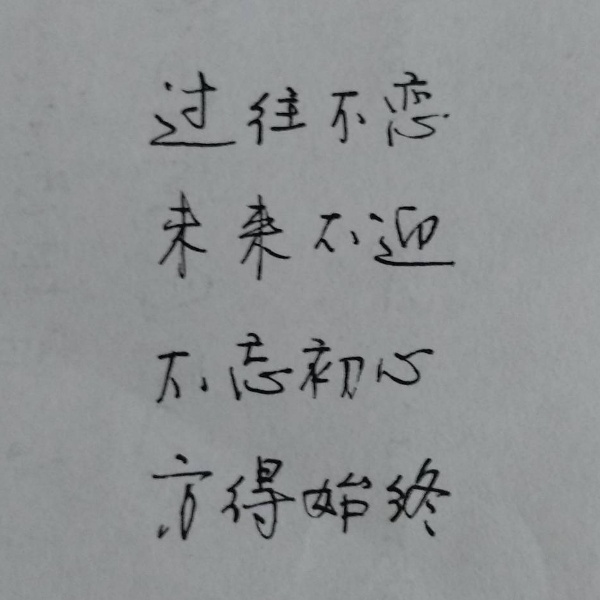 过往不恋
未来不迎
不忘初心
方得始终